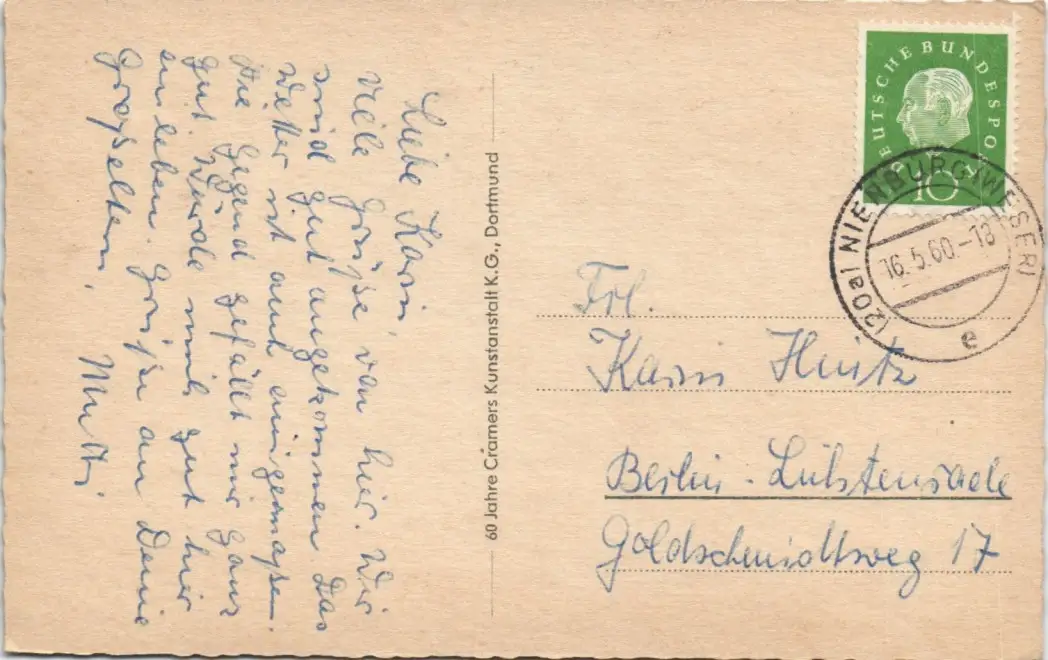 Liebe Karin,
viele Grüße von hier. Wir
sind gut angekommen Das
Wetter ist auch einigermaßen.
Die Gegend gefällt mir ganz
gut. Würde mich gut hier
einleben. Grüße an Deine
Großeltern,
Mutti
60 Jahre Cramers Kunstanstalt K.G., Dortmund
DEUTSCHE BUNDESPOST
10
(20a) NIENBURG (WESER)
16.5.60.-18
a
Frl.
Karin Hentz
Berlin - Lichtenrade
Goldschmidtweg 17